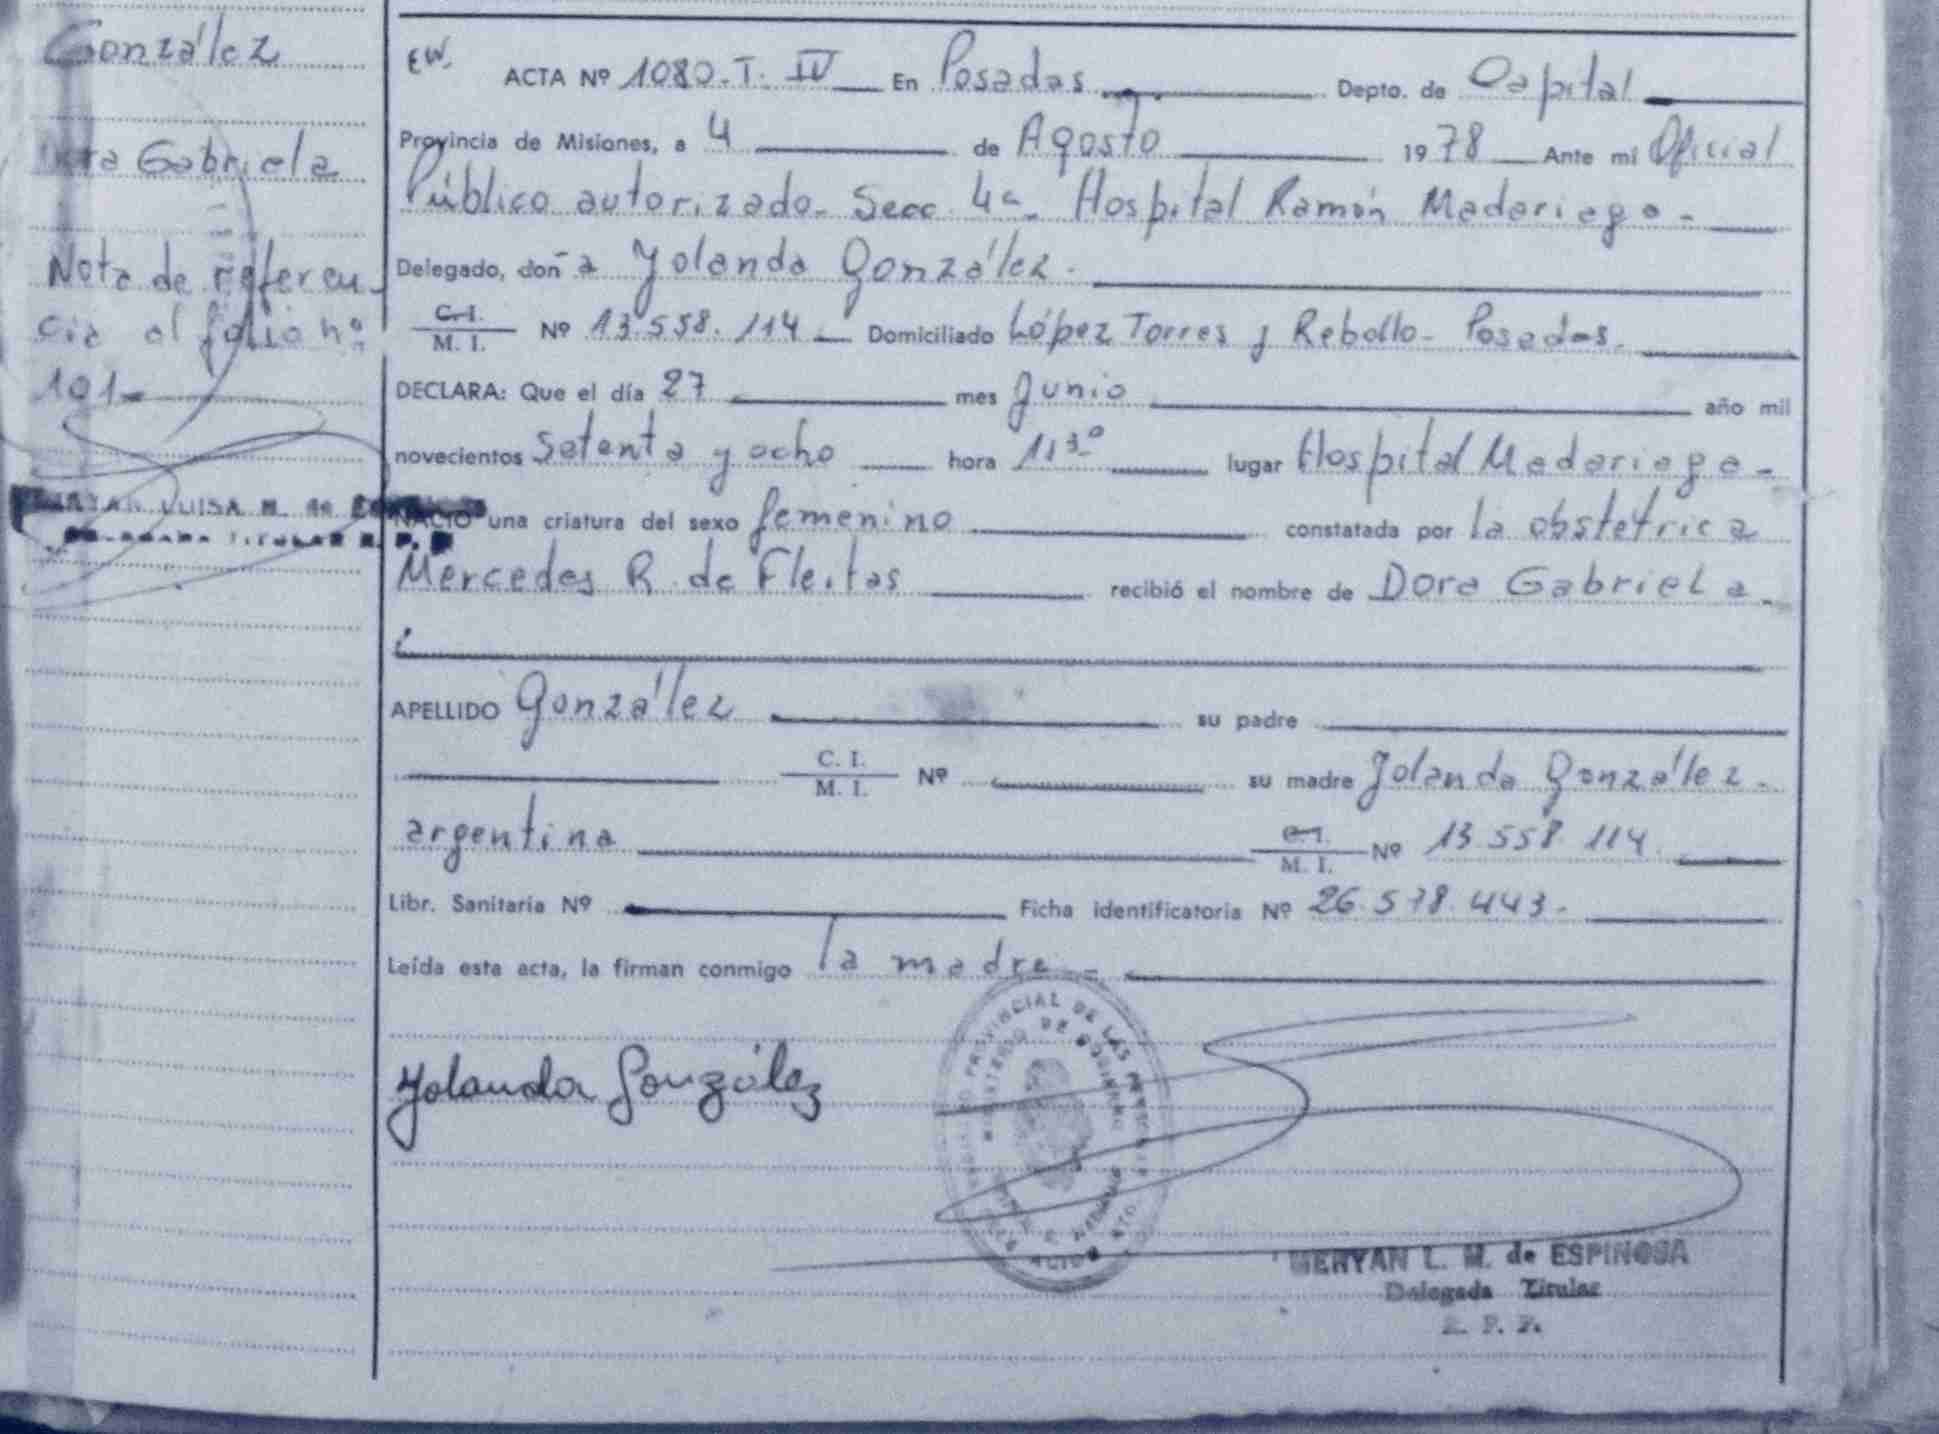 González
Dora Gabriela
Nota de referen-
cia al folio nº
101-
EW.
ACTA Nº 1080. T. IV En Posadas Depto. de Capital
Provincia de Misiones, a 4 de Agosto 1978 Ante mi Oficial
Público autorizado- Secc 4a- Hospital Ramón Madariaga-
Delegado, don a Yolanda González.
C. I.
M. I. Nº 13.558.114 Domiciliado López Torres y Rebollo- Posadas.
DECLARA: Que el día 27 mes Junio año mil
novecientos setenta y ocho hora 11 30 lugar Hospital Madariaga-
NACIÓ una criatura del sexo femenino constatada por la obstétrica
Mercedes R. de Fleitas recibió el nombre de Dora Gabriela.
APELLIDO González su padre
C. I.
M. I. Nº su madre Yolanda González.
argentina C. I.
M. I. Nº 13 558 114
Libr. Sanitaria Nº Ficha identificatoria Nº 26.578.443.
Leída esta acta, la firman conmigo la madre
Yolanda González
PROVINCIAL DE LAS
MINISTERIO DE GOBIERNO
MERYAN L. M. de ESPINOSA
Delegada Titular